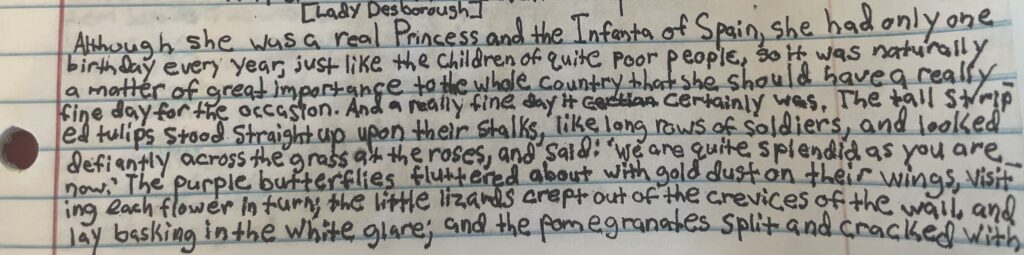 [Lady Desborough]
Although she was a real Princess and the Infanta of Spain, she had only one
birthday every year, just like the children of quite poor people, so it was naturally
a matter of great importance to the whole country that she should have a really
fine day for the occasion. And a really fine day it certainly was. The tall strip
ed tulips stood straight up upon their stalks, like long rows of soldiers, and looked
defiantly across the grass at the roses, and said: 'We are quite splendid as you are
now.' The purple butterflies fluttered about with gold dust on their wings, visit
ing each flower in turn; the little lizards crept out of the crevices of the wall, and
lay basking in the white glare; and the pomegranates split and cracked with